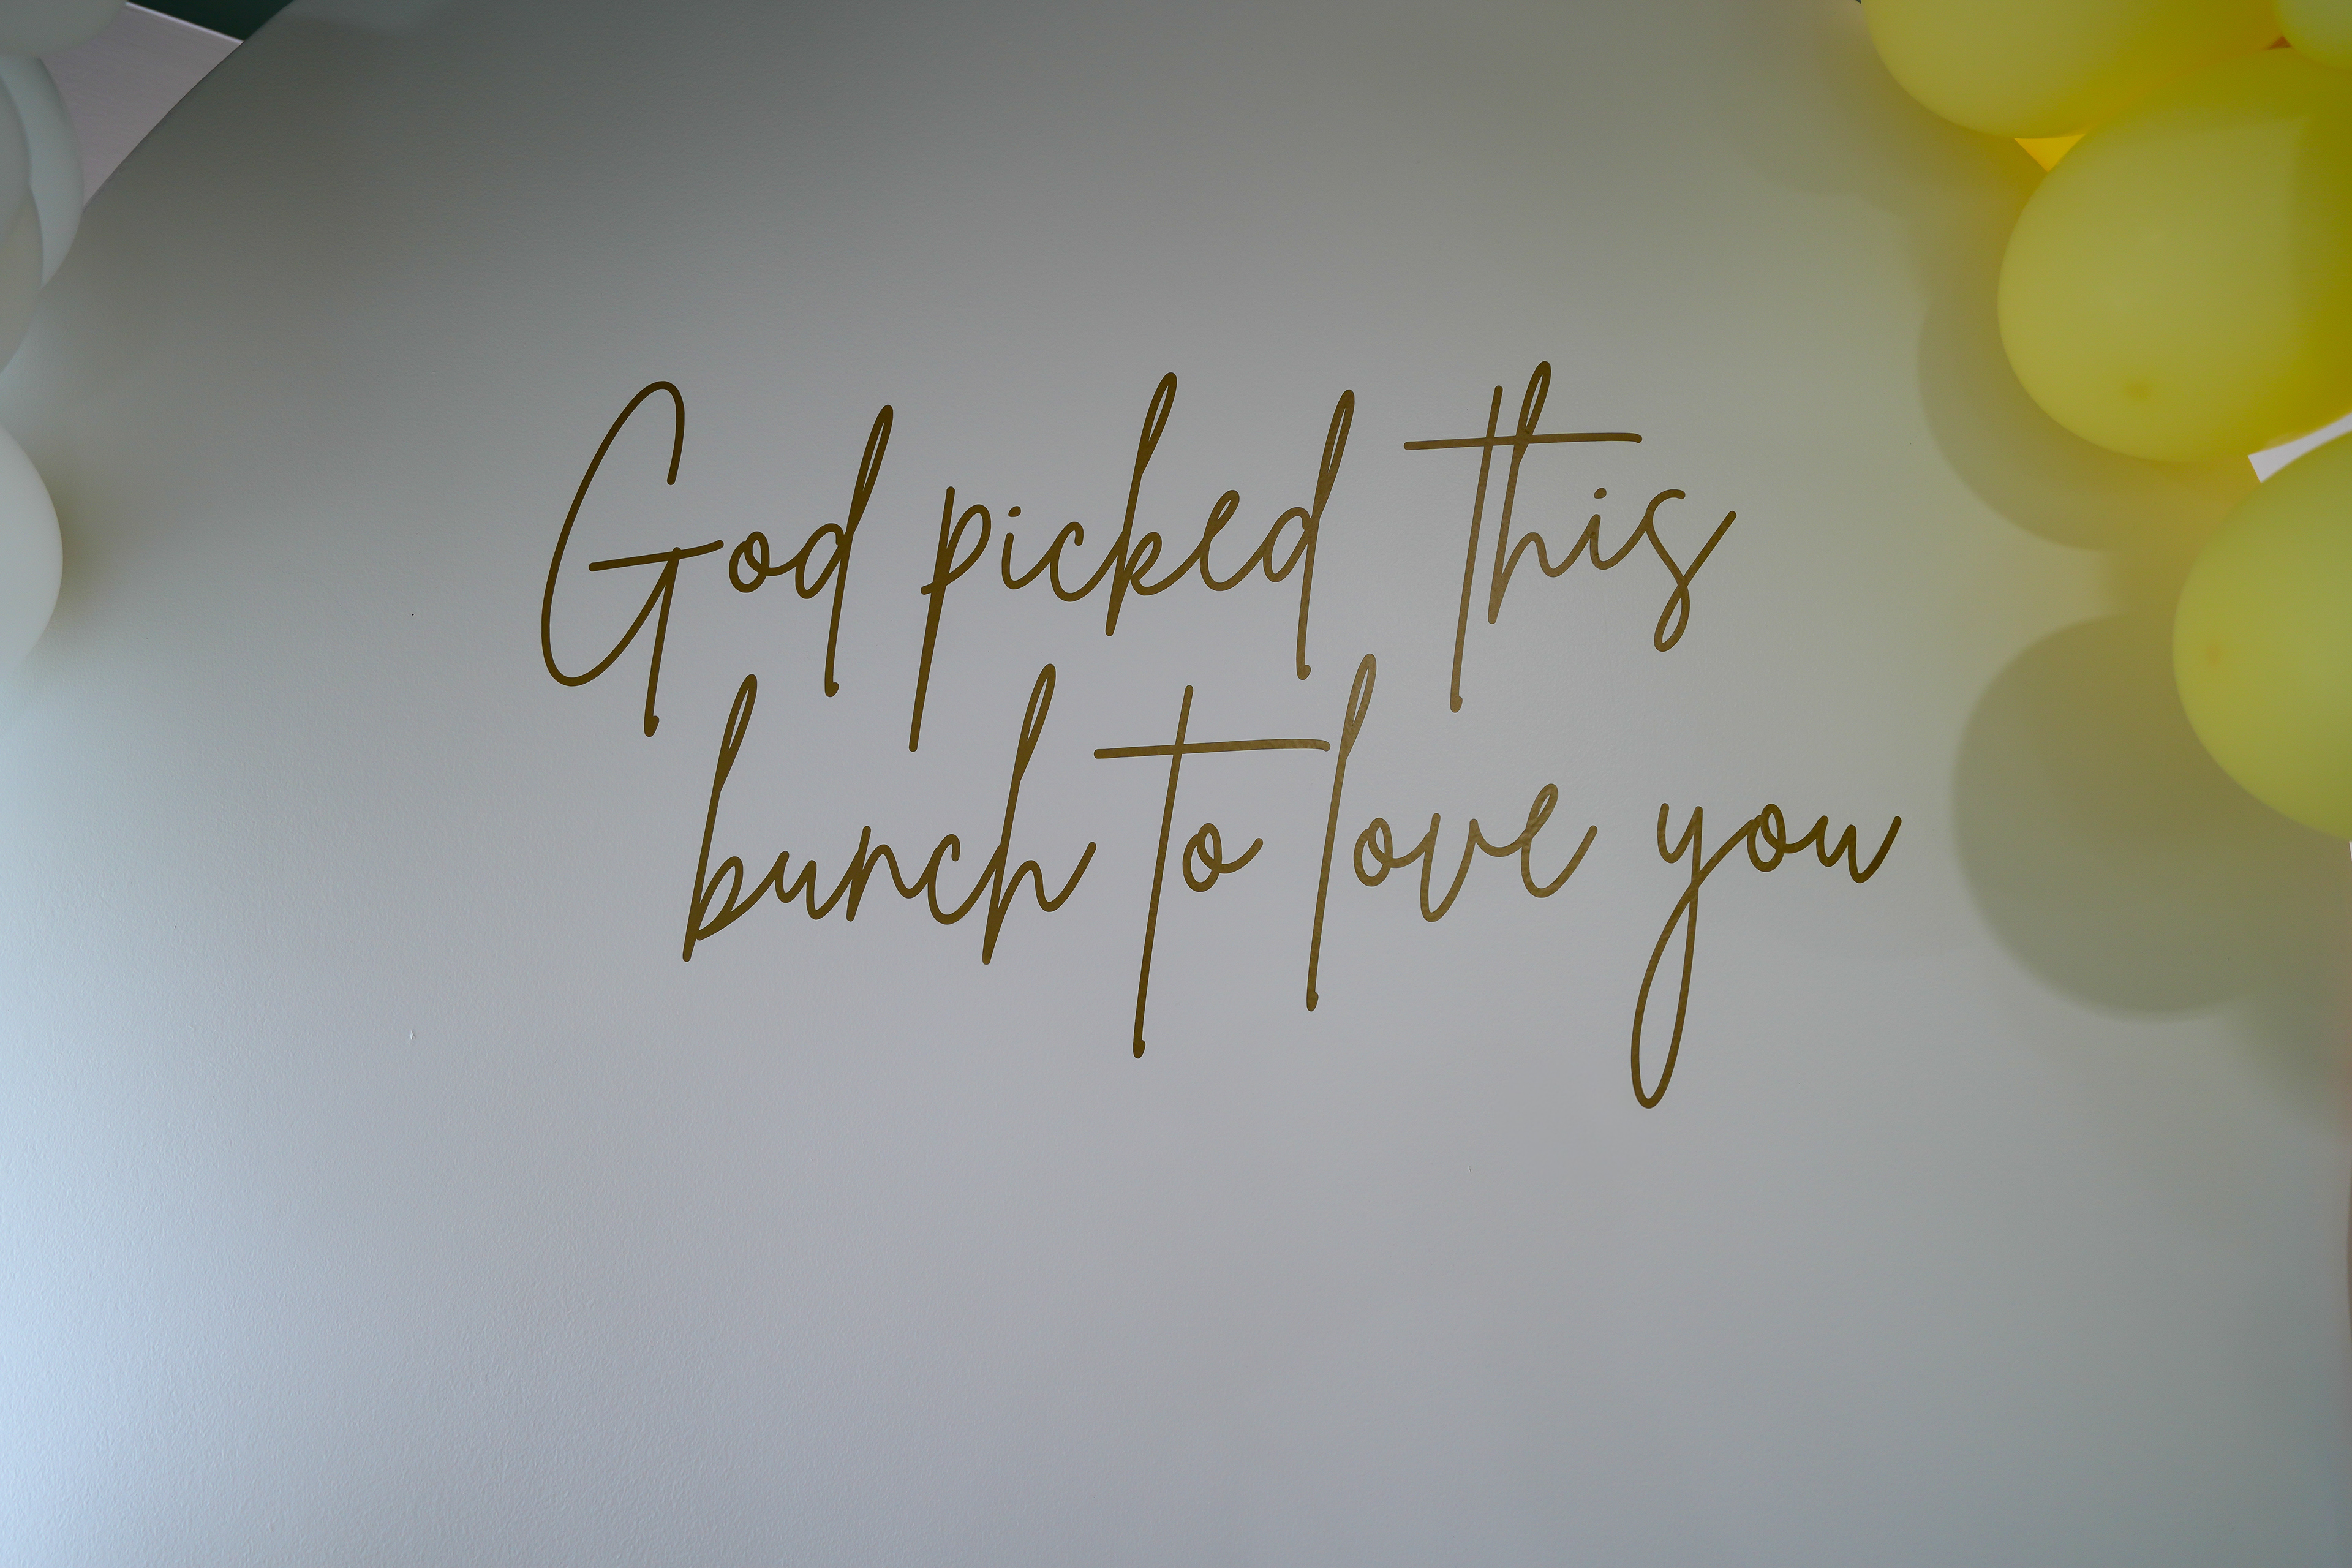 God picked this
bunch to love you